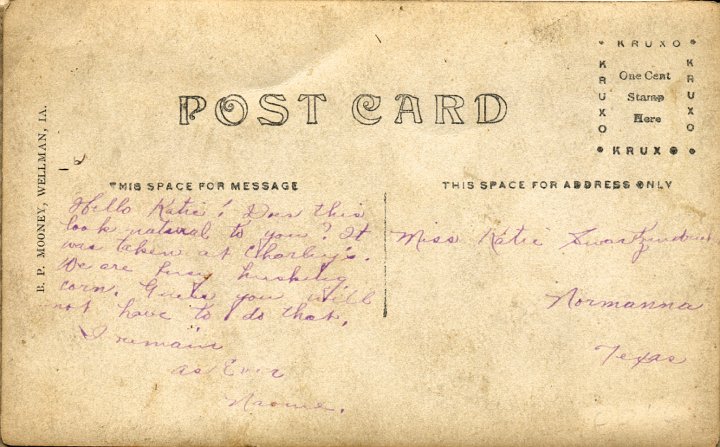 POST CARD
KRUXO
KRUXO
KRUXO
KRUXO
One Cent
Stamp
Here
B. P. MOONEY, WELLMAN, IA.
THIS SPACE FOR MESSAGE
THIS SPACE FOR ADDRESS ONLY
Hello Katie! Does this
look natural to you? It
was taken at Charley's.
We are busy husking
corn. Guess you will
not have to do that.
I remain
as Ever
Naomi.
Miss Katie Swartzendruber
Normanna
Texas